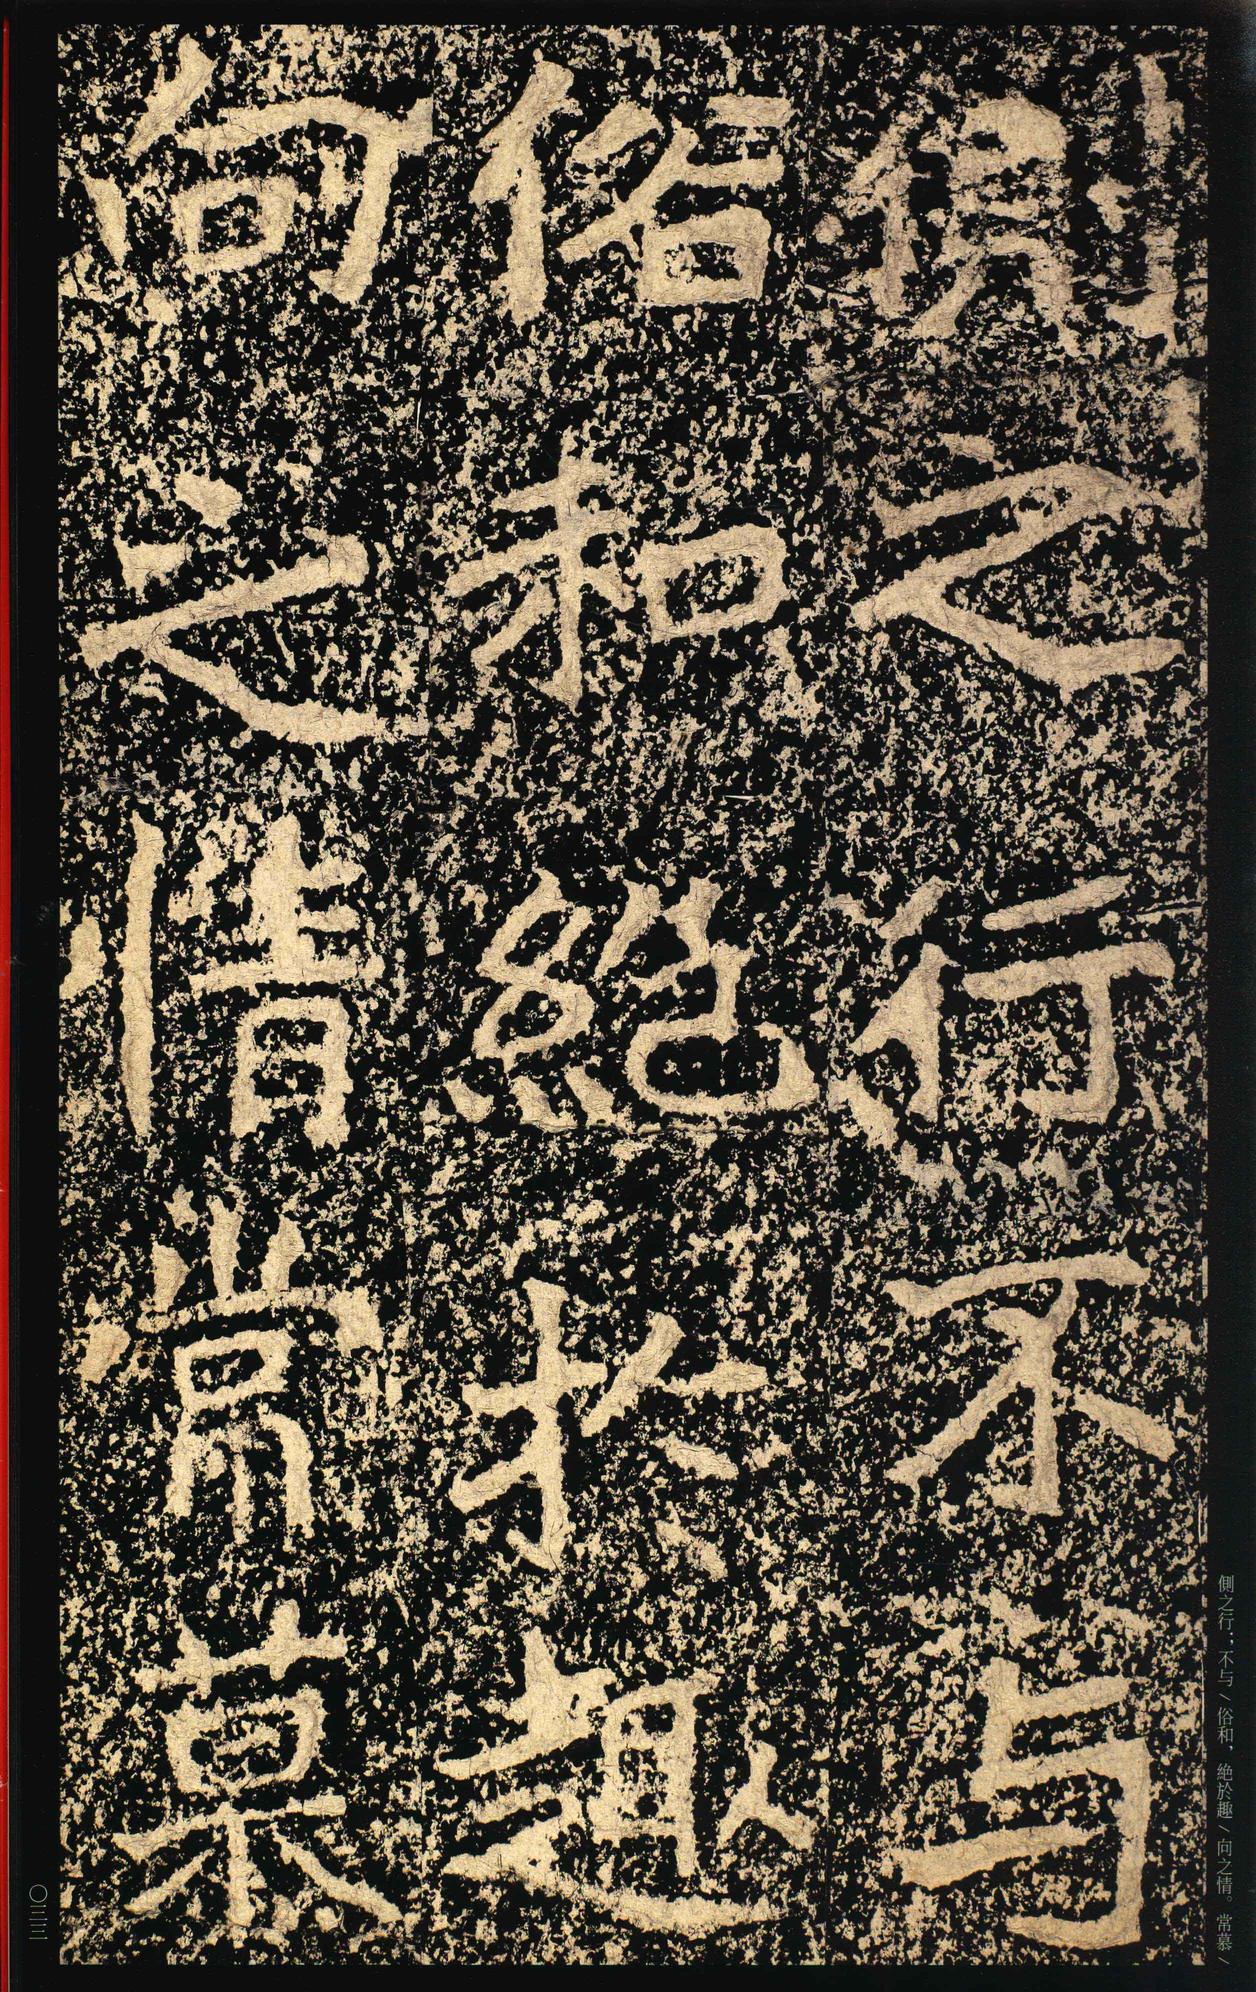 側之行不与
俗和絶於趣
向之情常慕
側之行；不与／俗和，絶於趣／向之情。常慕／
〇三三